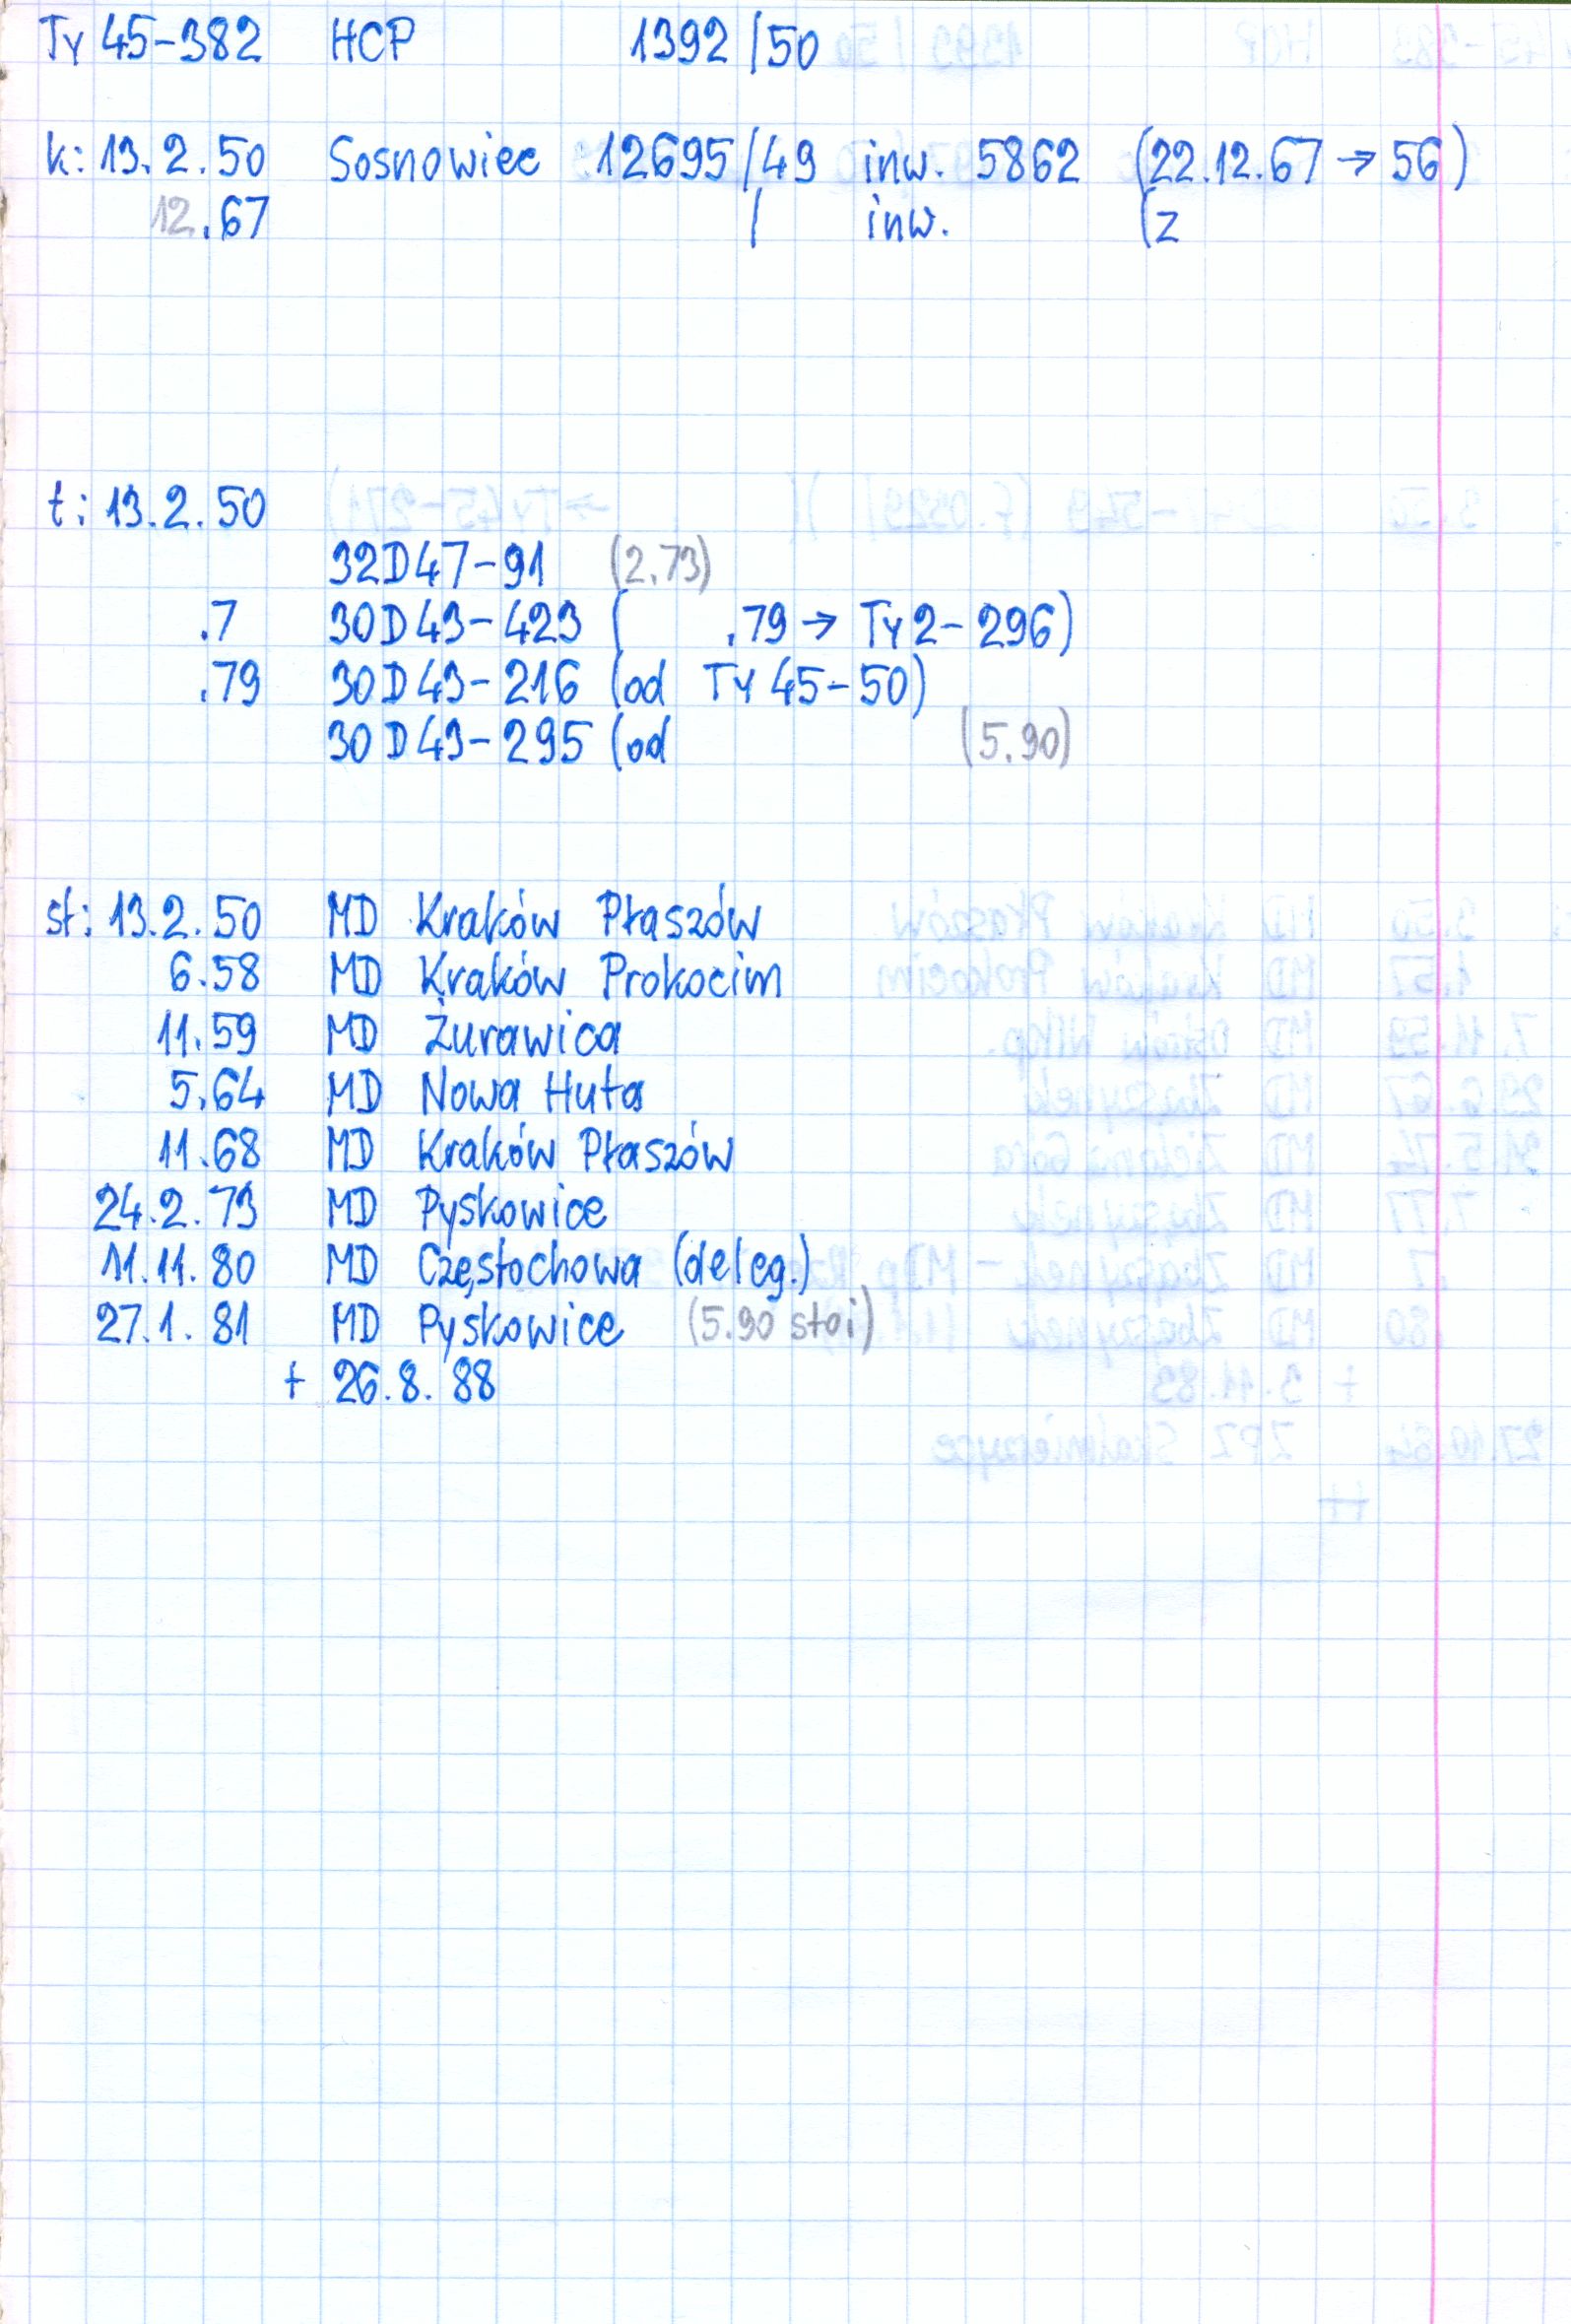 Ty 45-382 HCP 1392/50
k: 13.2.50 Sosnowiec 12695/49 inw. 5862 (22.12.67 → 56)
12.67 / inw. (z
t: 13.2.50
32D47-91 (2.73)
.7 30D43-423 ( .79 → Ty2-296)
.79 30D43-216 (od Ty45-50)
30D43-295 (od (5.90)
st: 13.2.50 MD Kraków Płaszów
6.58 MD Kraków Prokocim
11.59 MD Żurawica
5.64 MD Nowa Huta
11.68 MD Kraków Płaszów
24.2.73 MD Pyskowice
11.11.80 MD Częstochowa (deleg.)
27.1.81 MD Pyskowice (5.90 stoi)
+ 26.8.88